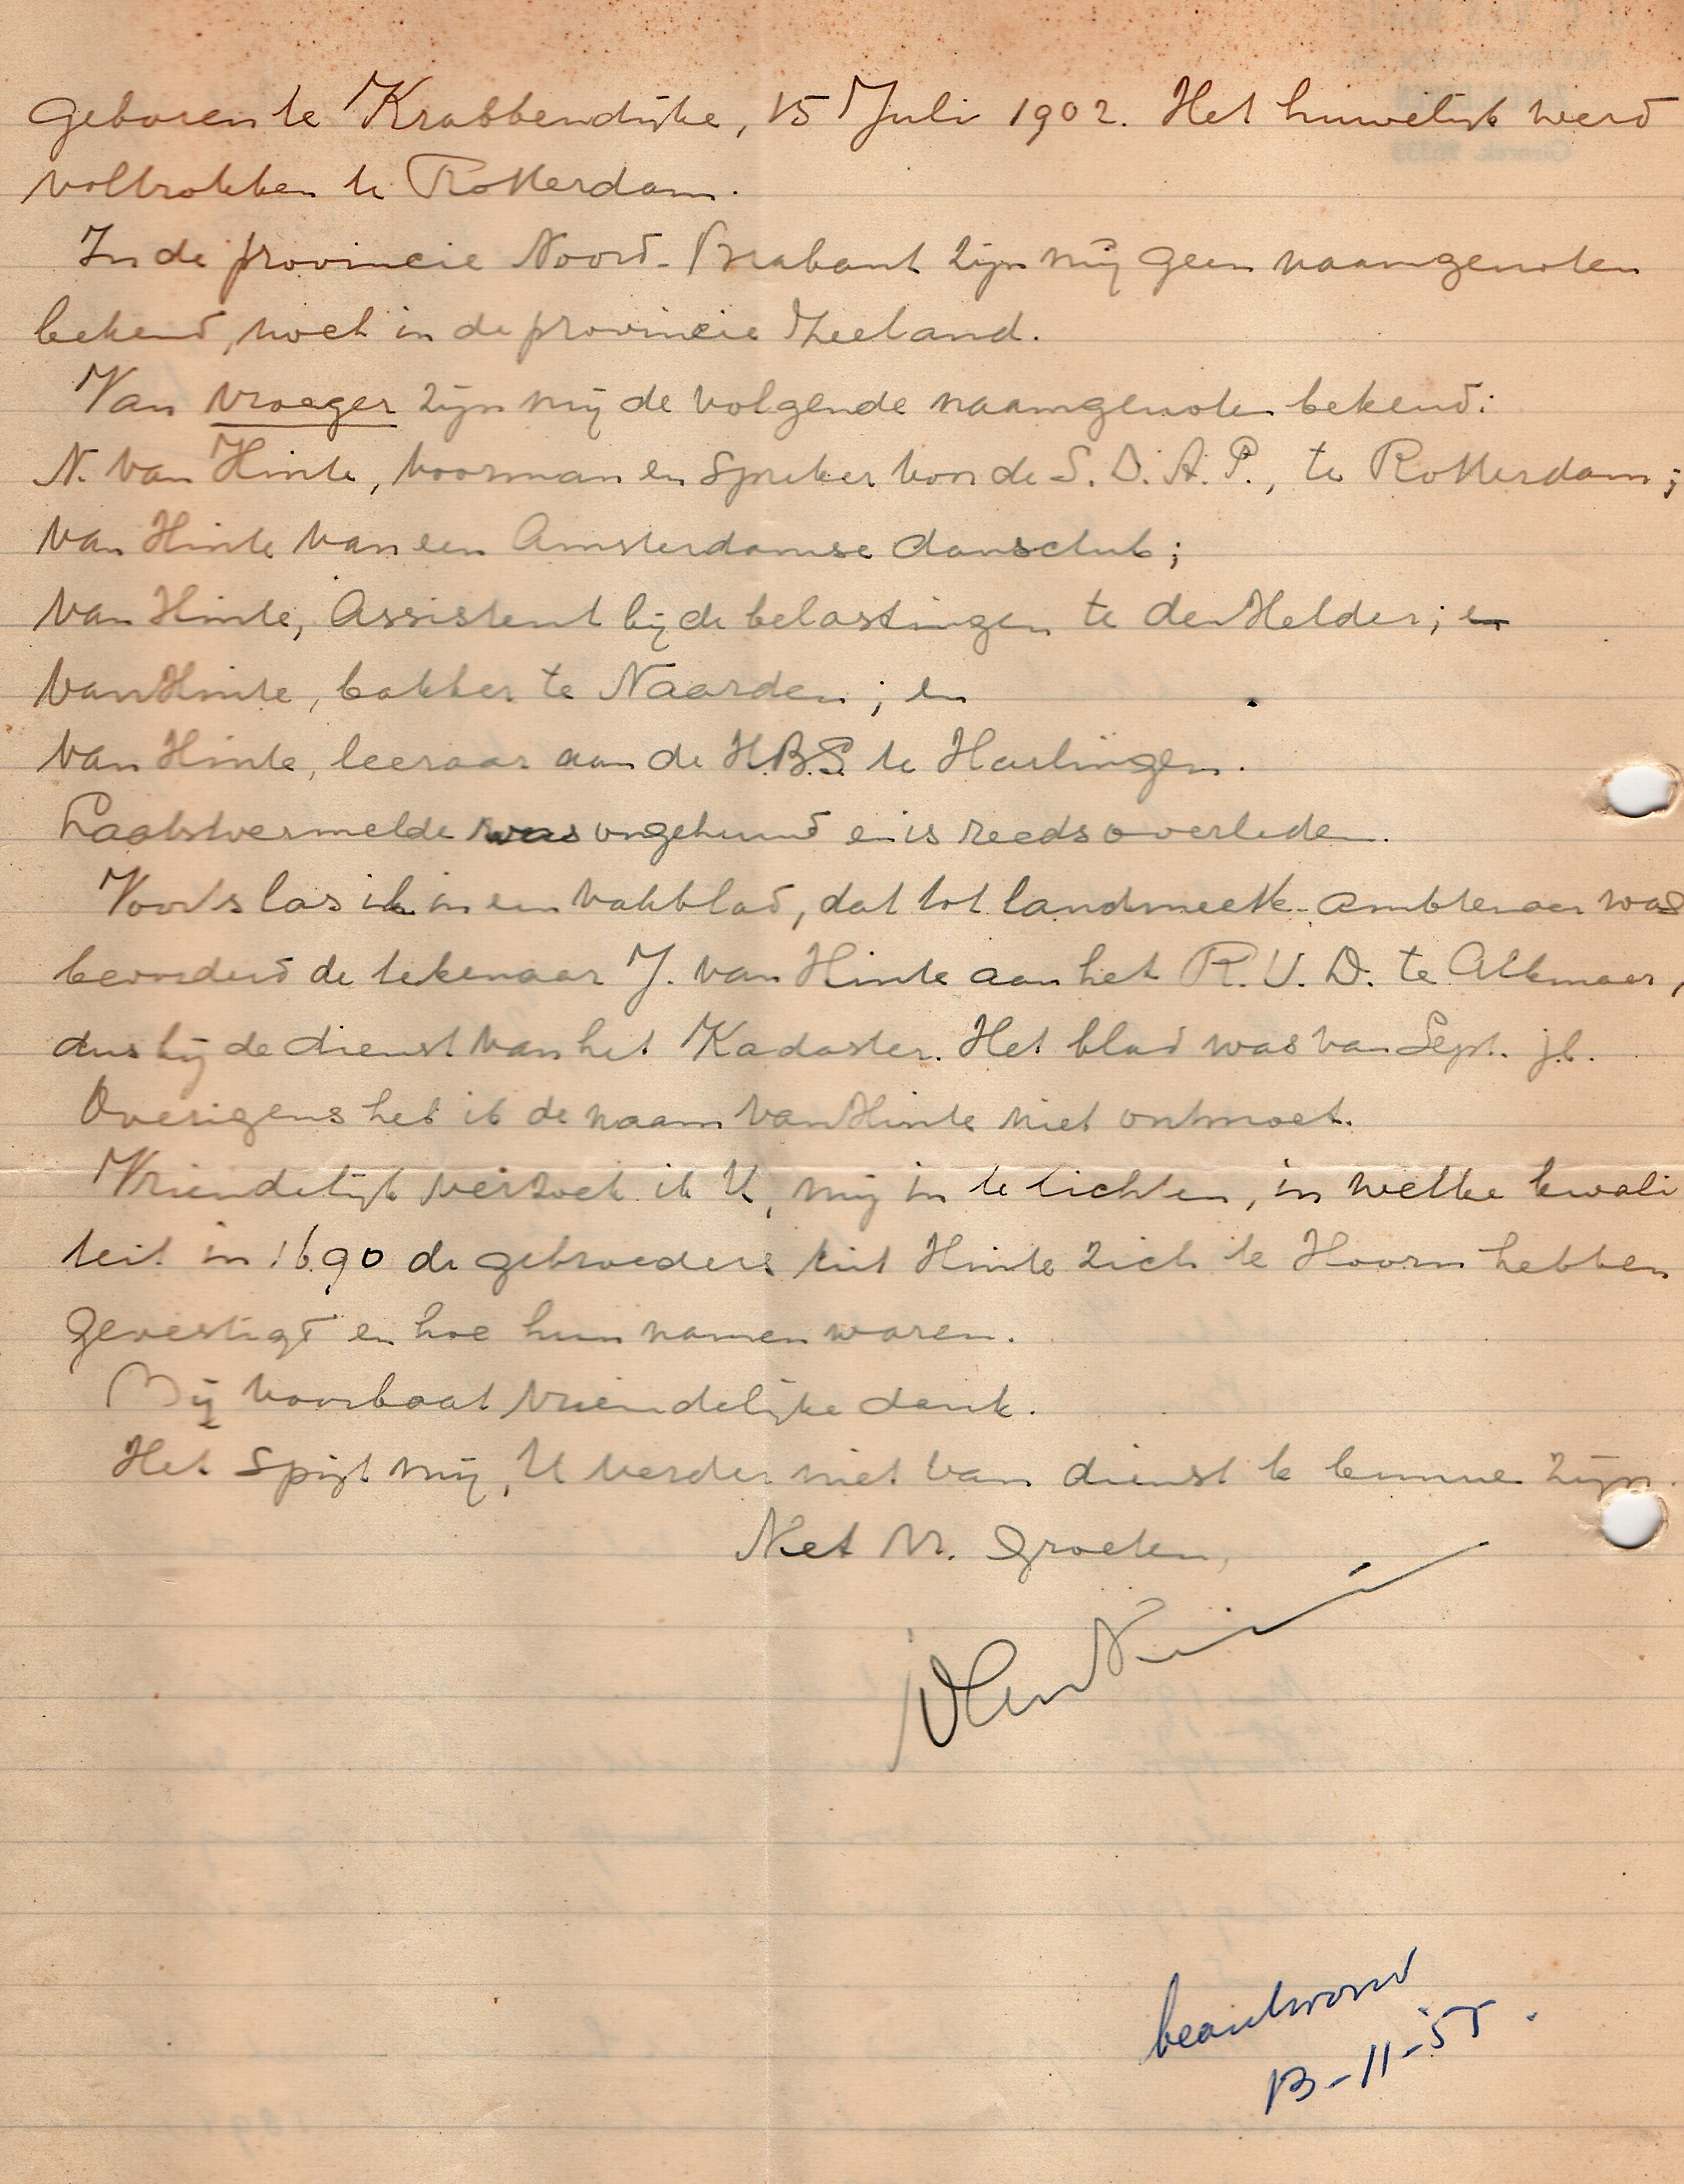 geboren te Krabbendijke, 15 Juli 1902. Het huwelijk werd
voltrokken te Rotterdam.
In de provincie Noord-Brabant zijn mij geen naamgenoten
bekend, noch in de provincie Zeeland.
Van vroeger zijn mij de volgende naamgenoten bekend:
N. van Hinte, voorman en spreker van de S.D.A.P., te Rotterdam;
van Hinte van een Amsterdamse dansclub;
van Hinte, Assistent bij de belastingen te den Helder; en
van Hinte, bakker te Naarden; en
van Hinte, leeraar aan de H.B.S. te Harlingen.
Laatstvermelde was ongehuwd en is reeds overleden.
Voorts las ik in een vakblad, dat tot landmeetk. ambtenaar was
bevorderd de tekenaar J. van Hinte aan het R.V.D. te Alkmaar,
dus bij de dienst van het Kadaster. Het blad was van Sept. j.l.
Overigens heb ik de naam van Hinte niet ontmoet.
Vriendelijk verzoek ik U, mij in te lichten, in welke kwali
teit in 1690 de gebroeders uit Hinte zich te Hoorn hebben
gevestigd en hoe hun namen waren.
Bij voorbaat vriendelijke dank.
Het spijt mij, U verder niet van dienst te kunnen zijn.
Met vr. groeten,
beantwoord
13-11-'55.